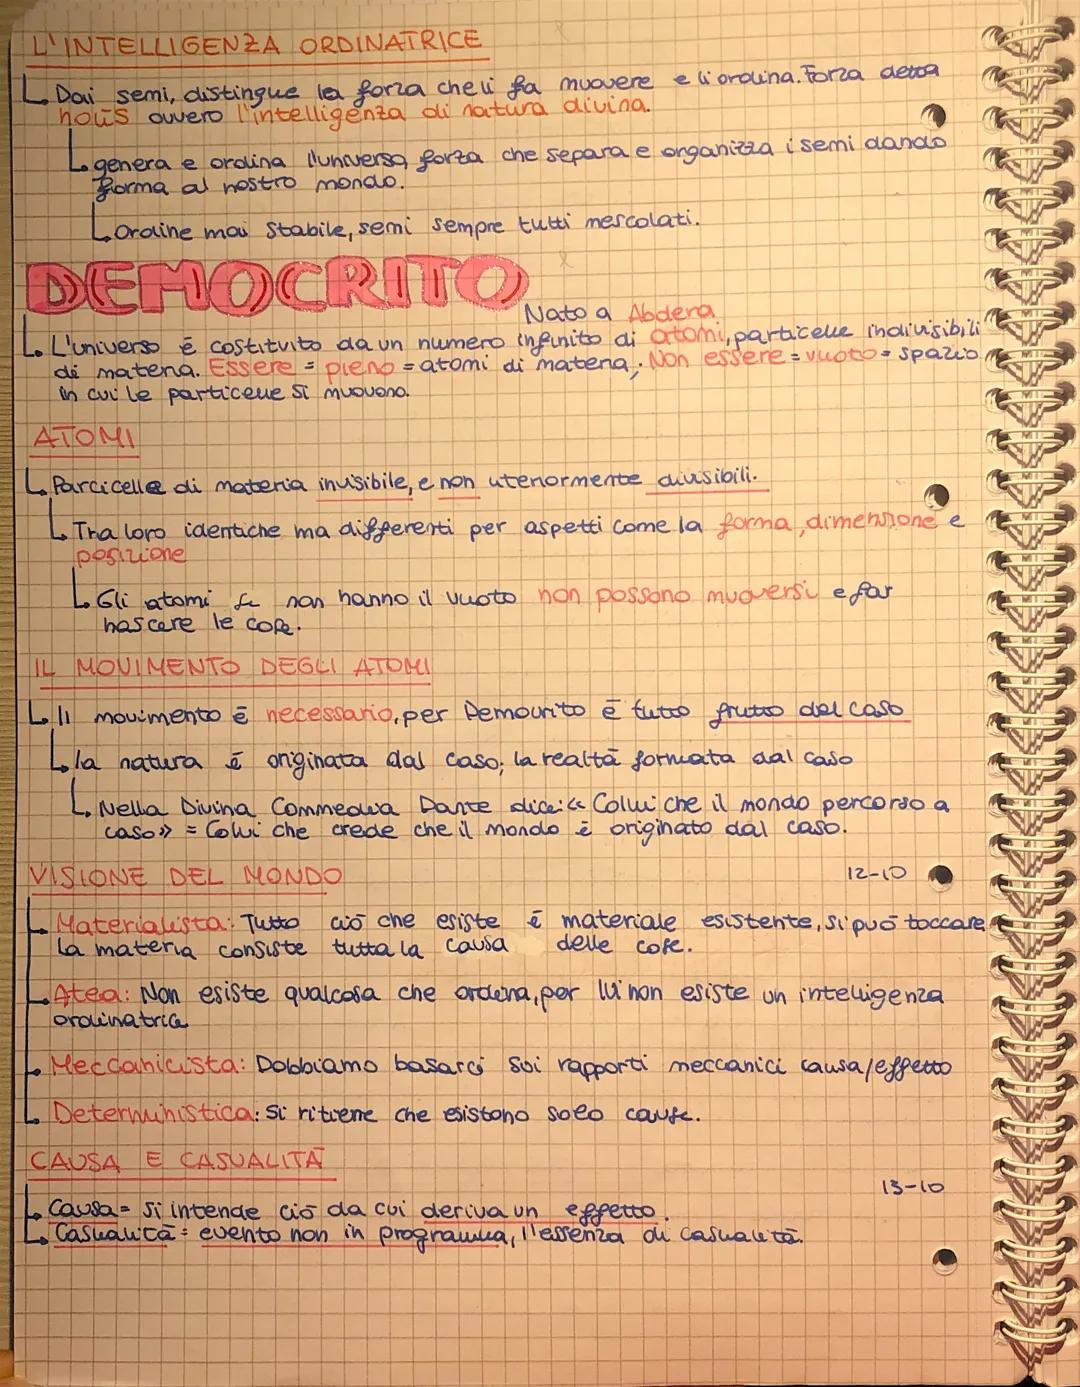 L'INTELLIGENZA ORDINATRICE
Dai semi, distingue la forza che li fa muovere e li ordina. Forza detta
noūs ovvero l'intelligenza di natura divina.
genera e ordina l'universo, forza che separa e organizza i semi dando
forma al nostro mondo.
Ordine mai stabile, semi sempre tutti mescolati.
DEMOCRITO
Nato a Abdera
L'universo é costituito da un numero infinito di atomi, particelle indivisibili
di materia. Essere = pieno = atomi di materia; Non essere = vuoto = spazio
in cui le particelle si muovono.
ATOMI
Parcicelle di materia invisibile, e non utenormente divisibili.
Tra loro identiche ma differenti per aspetti come la forma, dimensione e
posizione
Gli atomi se non hanno il vuoto non possono muoversi e far
nascere le cose.
IL MOVIMENTO DEGLI ATOMI
Il movimento é necessario, per Democrito é tutto frutto del caso
la natura é originata dal caso; la realtà formata dal caso
Nella Divina Commedia Dante dice: << Collui che il mondo percorso a
caso>> = Colui che crede che il mondo é originato dal caso.
VISIONE DEL MONDO
12-10
Materialista: Tutto ciò che esiste é materiale esistente, si può toccare,
la materia consiste tutta la causa delle cose.
Atea: Non esiste qualcosa che ordina, per lui non esiste un intelligenza
ordinatrice
Meccanicista: Dobbiamo basarci sui rapporti meccanici causa/effetto
Deterministica: Si ritiene che esistono solo cause.
CAUSA E CASUALITÀ
13-10
Causa = Si intende ciò da cui deriva un effetto.
Casualità = evento non in programma, l'essenza di casualità.